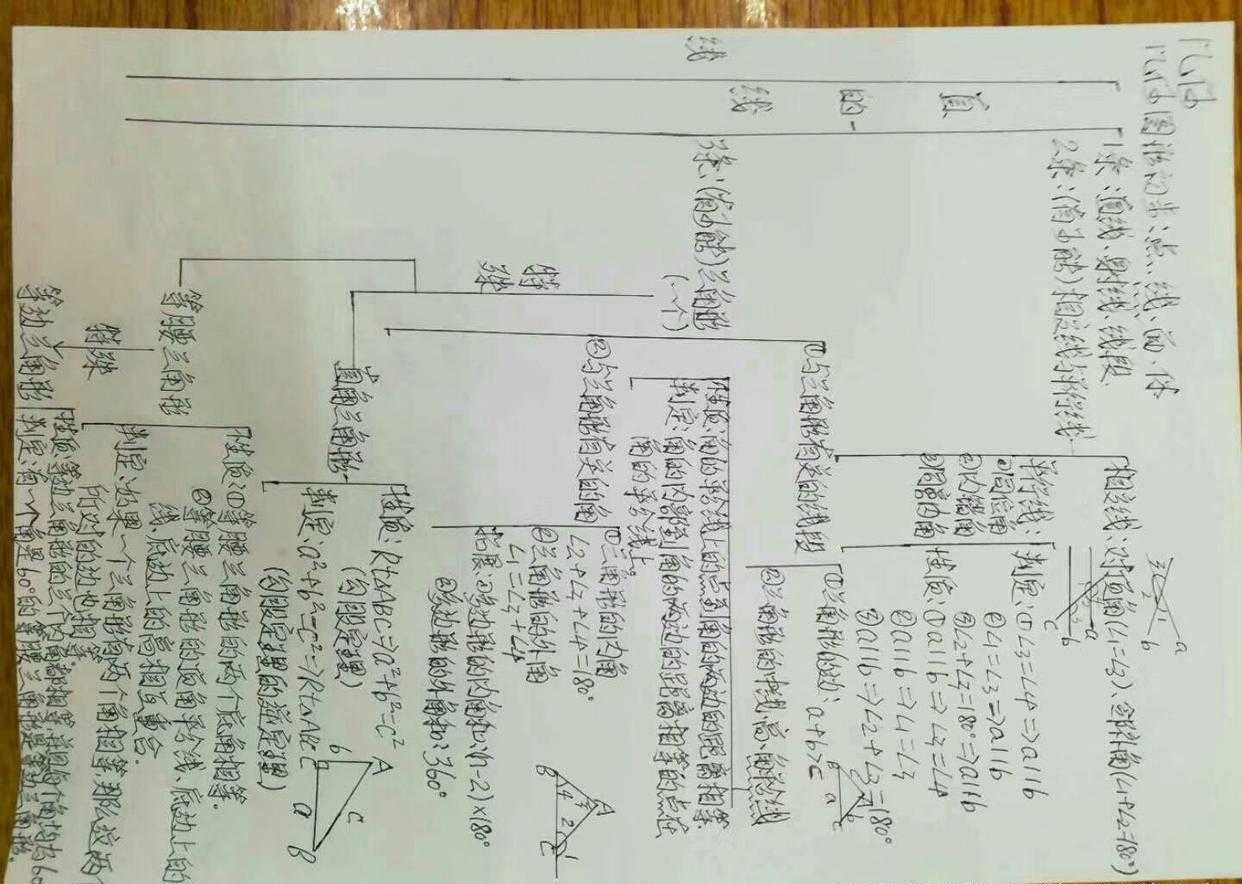 几何
几何图形初步:点、线、面、体
直线的
线
1条:直线、射线、线段
2条:(有可能)相交线与平行线
相交线:对顶角(∠1=∠3)、邻补角(∠1+∠2=180°)
平行线:
①同位角
②内错角
③同旁内角
判定:①∠3=∠4⇒a∥b
②∠1=∠3⇒a∥b
③∠2+∠3=180°⇒a∥b
性质:①a∥b⇒∠3=∠4
②a∥b⇒∠1=∠3
③a∥b⇒∠2+∠3=180°
3条:(有可能)三角形
(一个)
①与三角形有关的线段
①三角形的边:a+b>c
②三角形的中线、高、角平分线
性质:角的平分线上的点到角的两边的距离相等
判定:角的内部到角的两边的距离相等的点在
角的平分线上。
②与三角形有关的角
①三角形的内角
∠2+∠3+∠4=180°
②三角形的外角
∠1=∠3+∠4
拓展:①多边形的内角和:(n-2)×180°
②多边形的外角和:360°
A
B
C
特殊
直角三角形
性质:Rt△ABC⇒a²+b²=c²
(勾股定理)
判定:a²+b²=c²⇒Rt△ABC
(勾股定理的逆定理)
A
b
c
C
a
B
等腰三角形
性质:①等腰三角形的两个底角相等。
②等腰三角形的顶角平分线、底边上的
线、底边上的高相互重合.
判定:如果一个三角形有两个角相等,那么这两
所对的边也相等。
特殊
等边三角形
性质:等边三角形的三个内角都相等,并且每个角都等于60°
判定:有一个角是60°的等腰三角形是等边三角形。